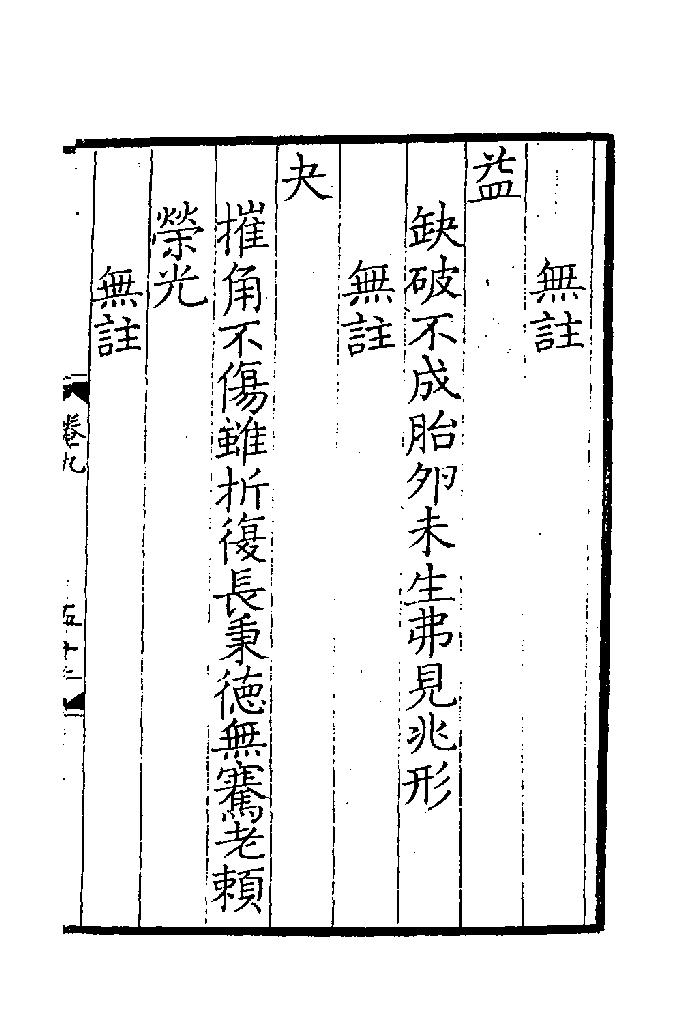 無註
益
缺破不成胎卵未生弗見兆形
無註
夬
摧角不傷雖折復長秉徳無騫老賴
榮光
無註
卷九
五十二